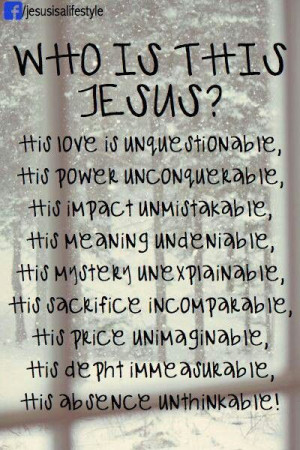 f/jesusisalifestyle
WHO IS THIS
JESUS?
His love is unquestionable,
His power unconquerable,
His impact unmistakable,
His meaning undeniable,
His mystery unexplainable,
His sacrifice incomparable,
His price unimaginable,
His depht immeasurable,
His absence unthinkable!